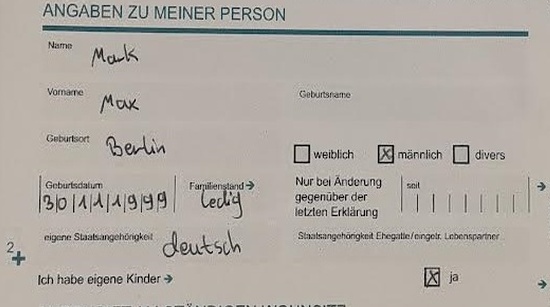 ANGABEN ZU MEINER PERSON
Name Mark
Vorname Max Geburtsname
Geburtsort Berlin
weiblich männlich divers
Geburtsdatum 30111999 Familienstand ledig Nur bei Änderung gegenüber der letzten Erklärung seit
2
eigene Staatsangehörigkeit deutsch Staatsangehörigkeit Ehegatte/eingetr. Lebenspartner
Ich habe eigene Kinder ja